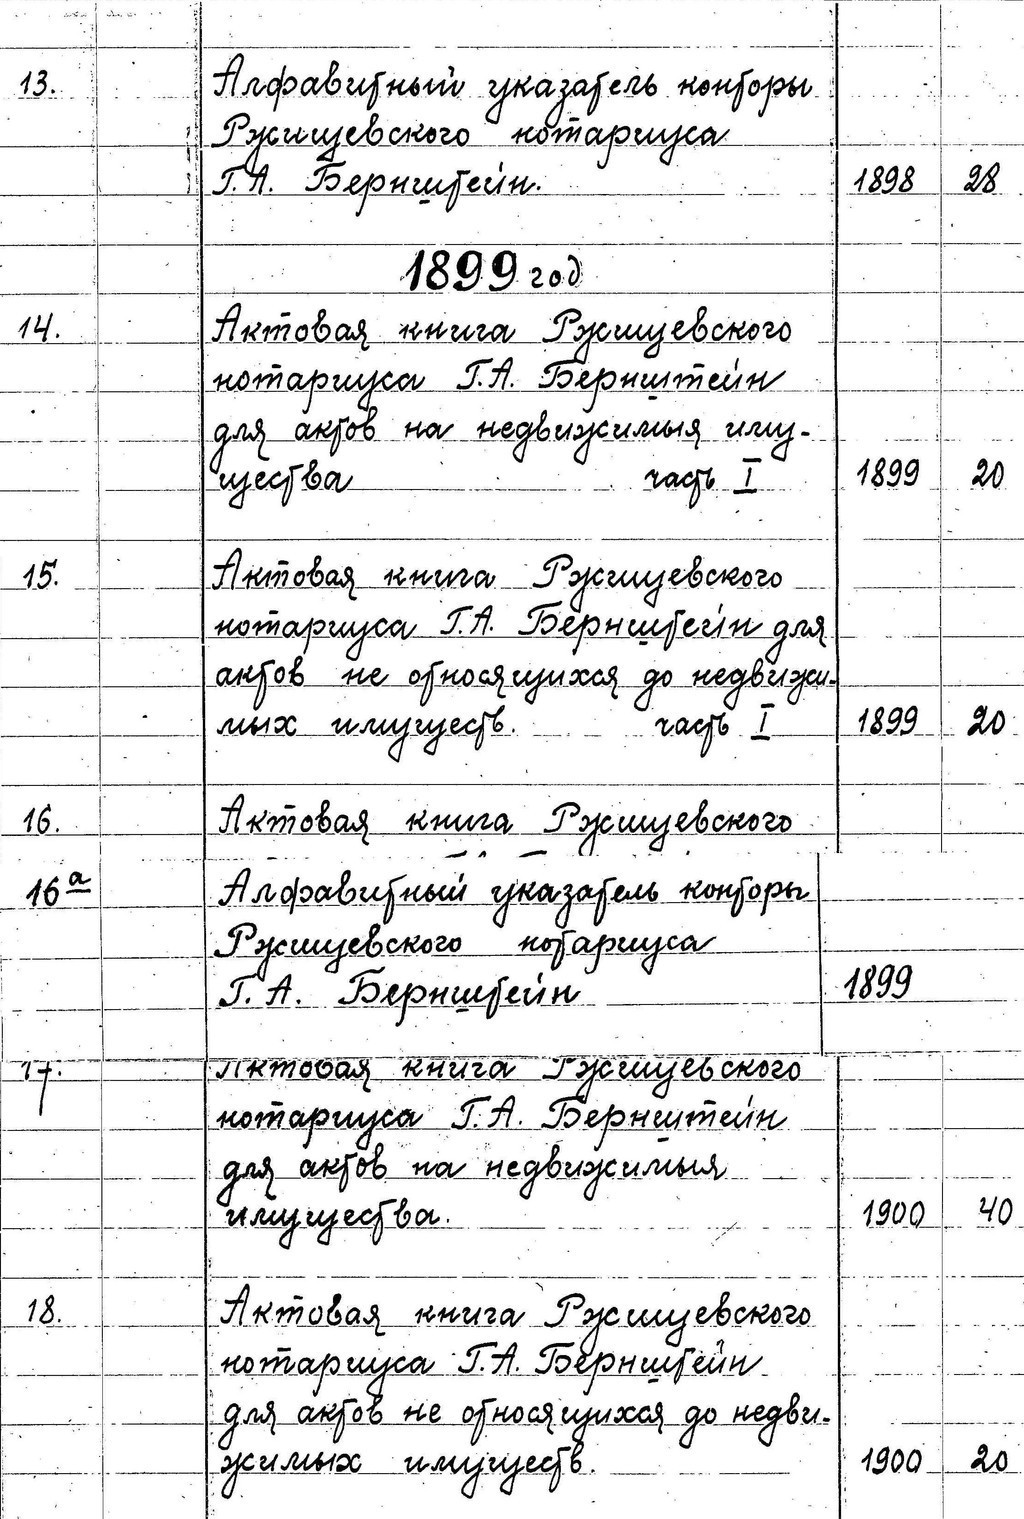 13. Алфавитный указатель конторы
Ржищевского нотариуса
Г.А. Бернштейн. 1898 28
1899 год
14. Актовая книга Ржищевского
нотариуса Г.А. Бернштейн
для актов на недвижимыя иму-
щества часть I 1899 20
15. Актовая книга Ржищевского
нотариуса Г.А. Бернштейн для
актов не относящихся до недвижи-
мых имуществ. часть I 1899 20
16. Актовая книга Ржищевского
16а Алфавитный указатель конторы
Ржищевского нотариуса
Г.А. Бернштейн 1899
17. Актовая книга Ржищевского
нотариуса Г.А. Бернштейн
для актов на недвижимыя
имущества. 1900 40
18. Актовая книга Ржищевского
нотариуса Г.А. Бернштейн
для актов не относящихся до недви-
жимых имуществ. 1900 20